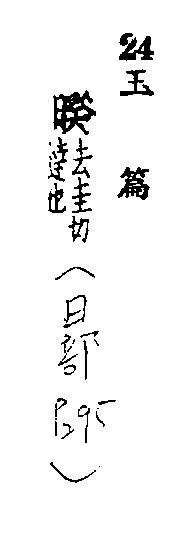 24玉 篇
暌去圭切
違也
(日部 P295)